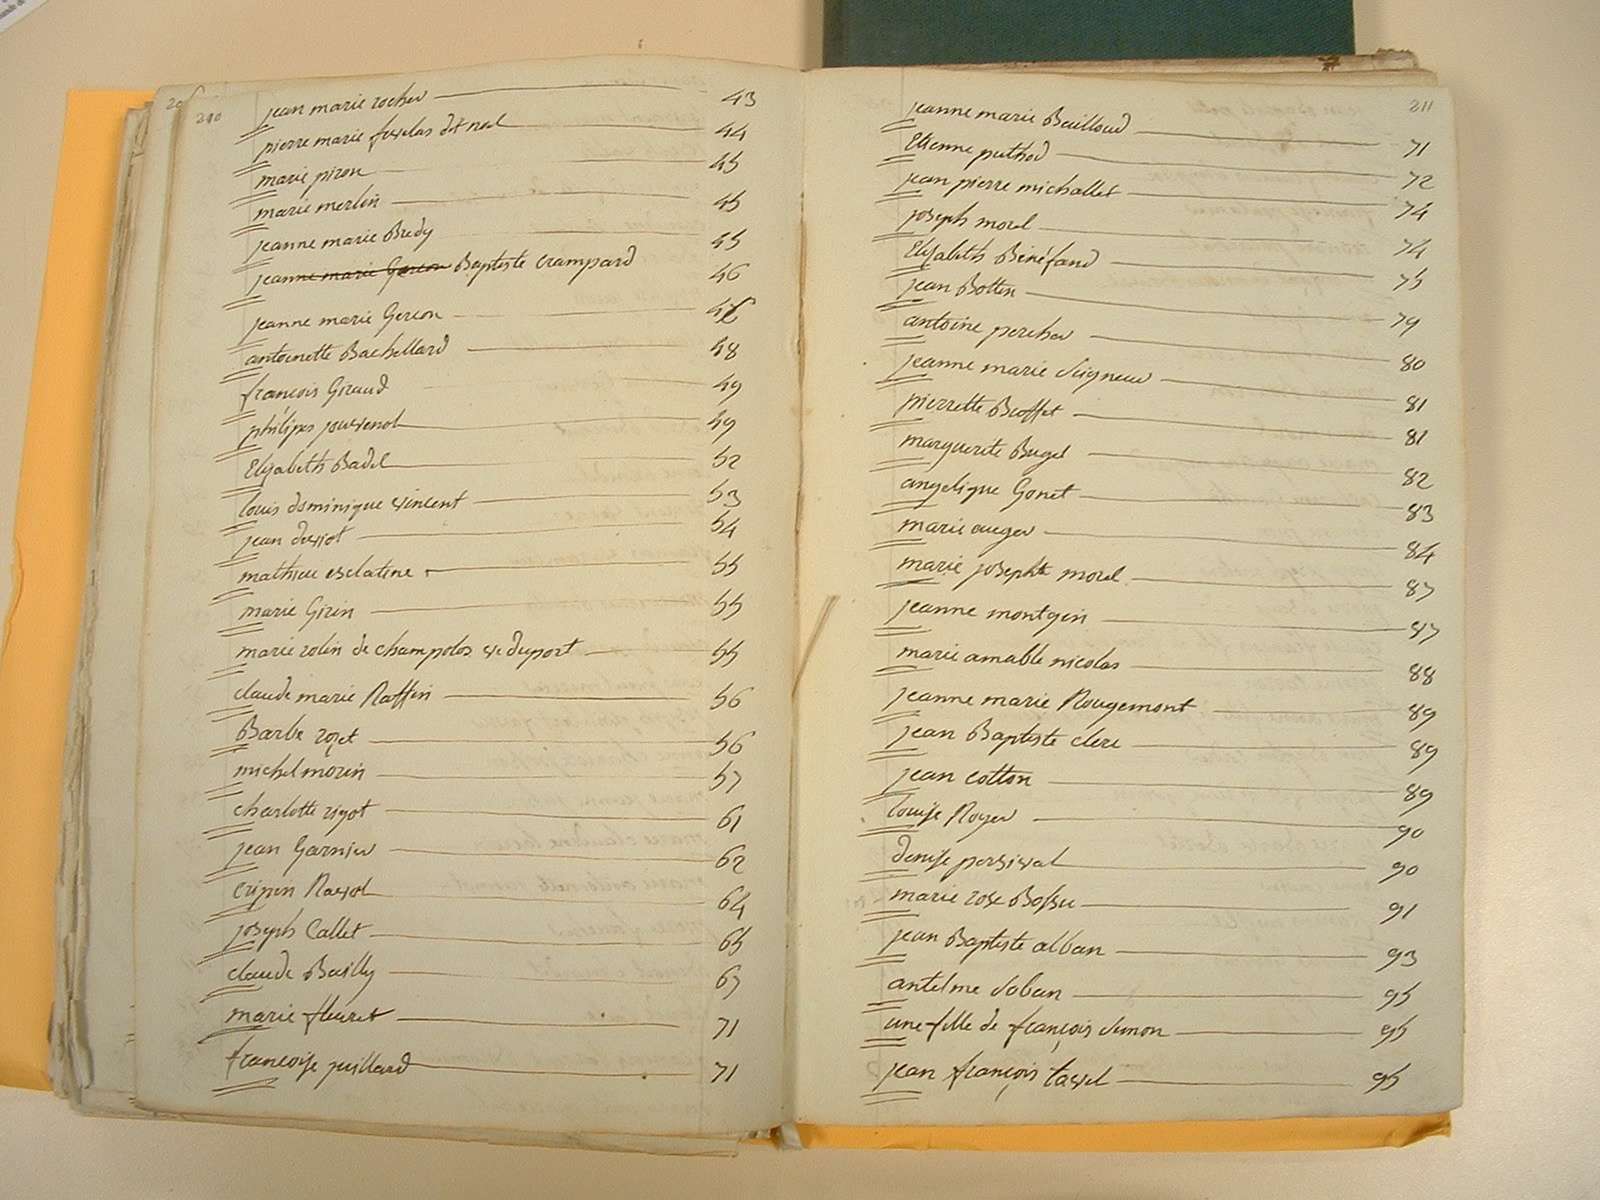 210
jean marie rocher 43
pierre marie fuselas dit nel 44
marie piron 45
marie merlin 45
jeanne marie Bredy 45
jeanne marie Gercon Baptiste crampard 46
jeanne marie Gercon 46
antoinette Bachellard 48
françois Giraud 49
philipes jouvenot 49
Elisabeth Badel 52
louis dominique vincent 53
jean duriot 54
mathieu esclatine 55
marie Girin 55
marie rolin de champolos ve duport 55
claude marie Raffin 56
Barbe rojet 56
michel morin 57
charlotte rigot 61
jean Garnier 62
cripin Ravot 64
joseph Callet 65
claude Bailly 67
marie fleuret 71
francoise juillard 71
211
jeanne marie Bailloud 71
Etienne puthod 72
jean pierre michallet 74
joseph morel 74
Elisabeth Bénéfand 75
jean Botten 79
antoine percher 80
jeanne marie Seigneur 81
pierrette Broffet 81
marguerite Bugel 82
angelique Gonet 83
marie auger 84
marie josephte morel 87
jeanne montgin 87
marie amable nicolas 88
jeanne marie Rougemont 89
jean Baptiste clerc 89
jean cotton 89
louise Royer 90
denise persival 90
marie rose Bossu 91
jean Baptiste alban 93
antelme Saban 95
une fille de françois Simon 95
jean françois tavel 95